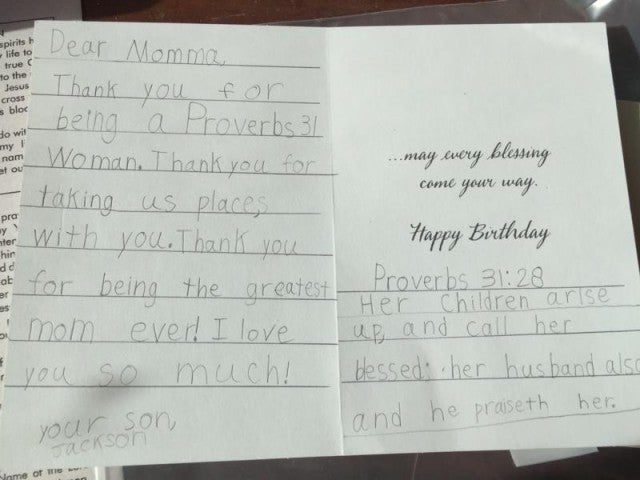 Dear Momma,
Thank you for
being a Proverbs 31
Woman. Thank you for
taking us places
with you. Thank you
for being the greatest
mom ever! I love
you so much!
your son,
Jackson
...may every blessing
come your way.
Happy Birthday
Proverbs 31:28
Her Children arise
up, and call her
blessed; her husband also
and he praiseth her.
spirits
life to
true
to the
Jesus
cross